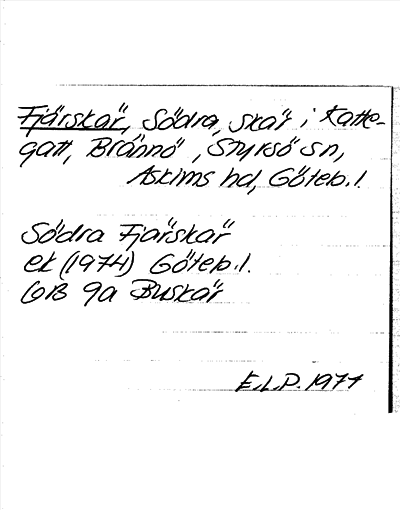 Fjärskär, Södra, skär i Katte-
gatt, Brännö, Styrsö sn,
Askims hd, Göteb. l.
Södra Fjärskär
ek (1974) Göteb. l.
GB 9a Buskär
E.L.P. 1977